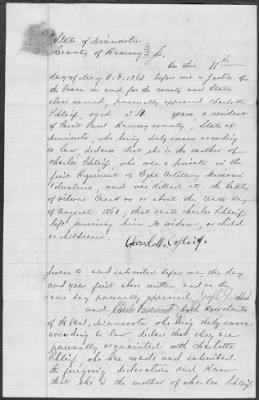 State of Minnesota
County of Ramsey } ss.
On this 11th
day of May A.D. 1863 before me a Justice of
the Peace in and for the county and State
above named, personally appeared Charlotte
aged years a resident
of Saint Paul Ramsey county, State of
Minnesota, who being duly sworn according
to law, declares that she is the mother of
Charles who was a private in the
first Regiment of Light Artillery Missouri
Volunteers, and was killed at the battle
of Wilsons Creek on or about the tenth day
of August 1861, that said Charles
left surviving him no widow, or child
or children.
Sworn to and subscribed before me the day
and year first above written, and on the
same day personally appeared
and both residents
of St. Paul, Minnesota who being duly sworn
according to law, declare that they are
personally acquainted with Charlotte
who has made and subscribed
the foregoing declaration and know
that she is the mother of Charles